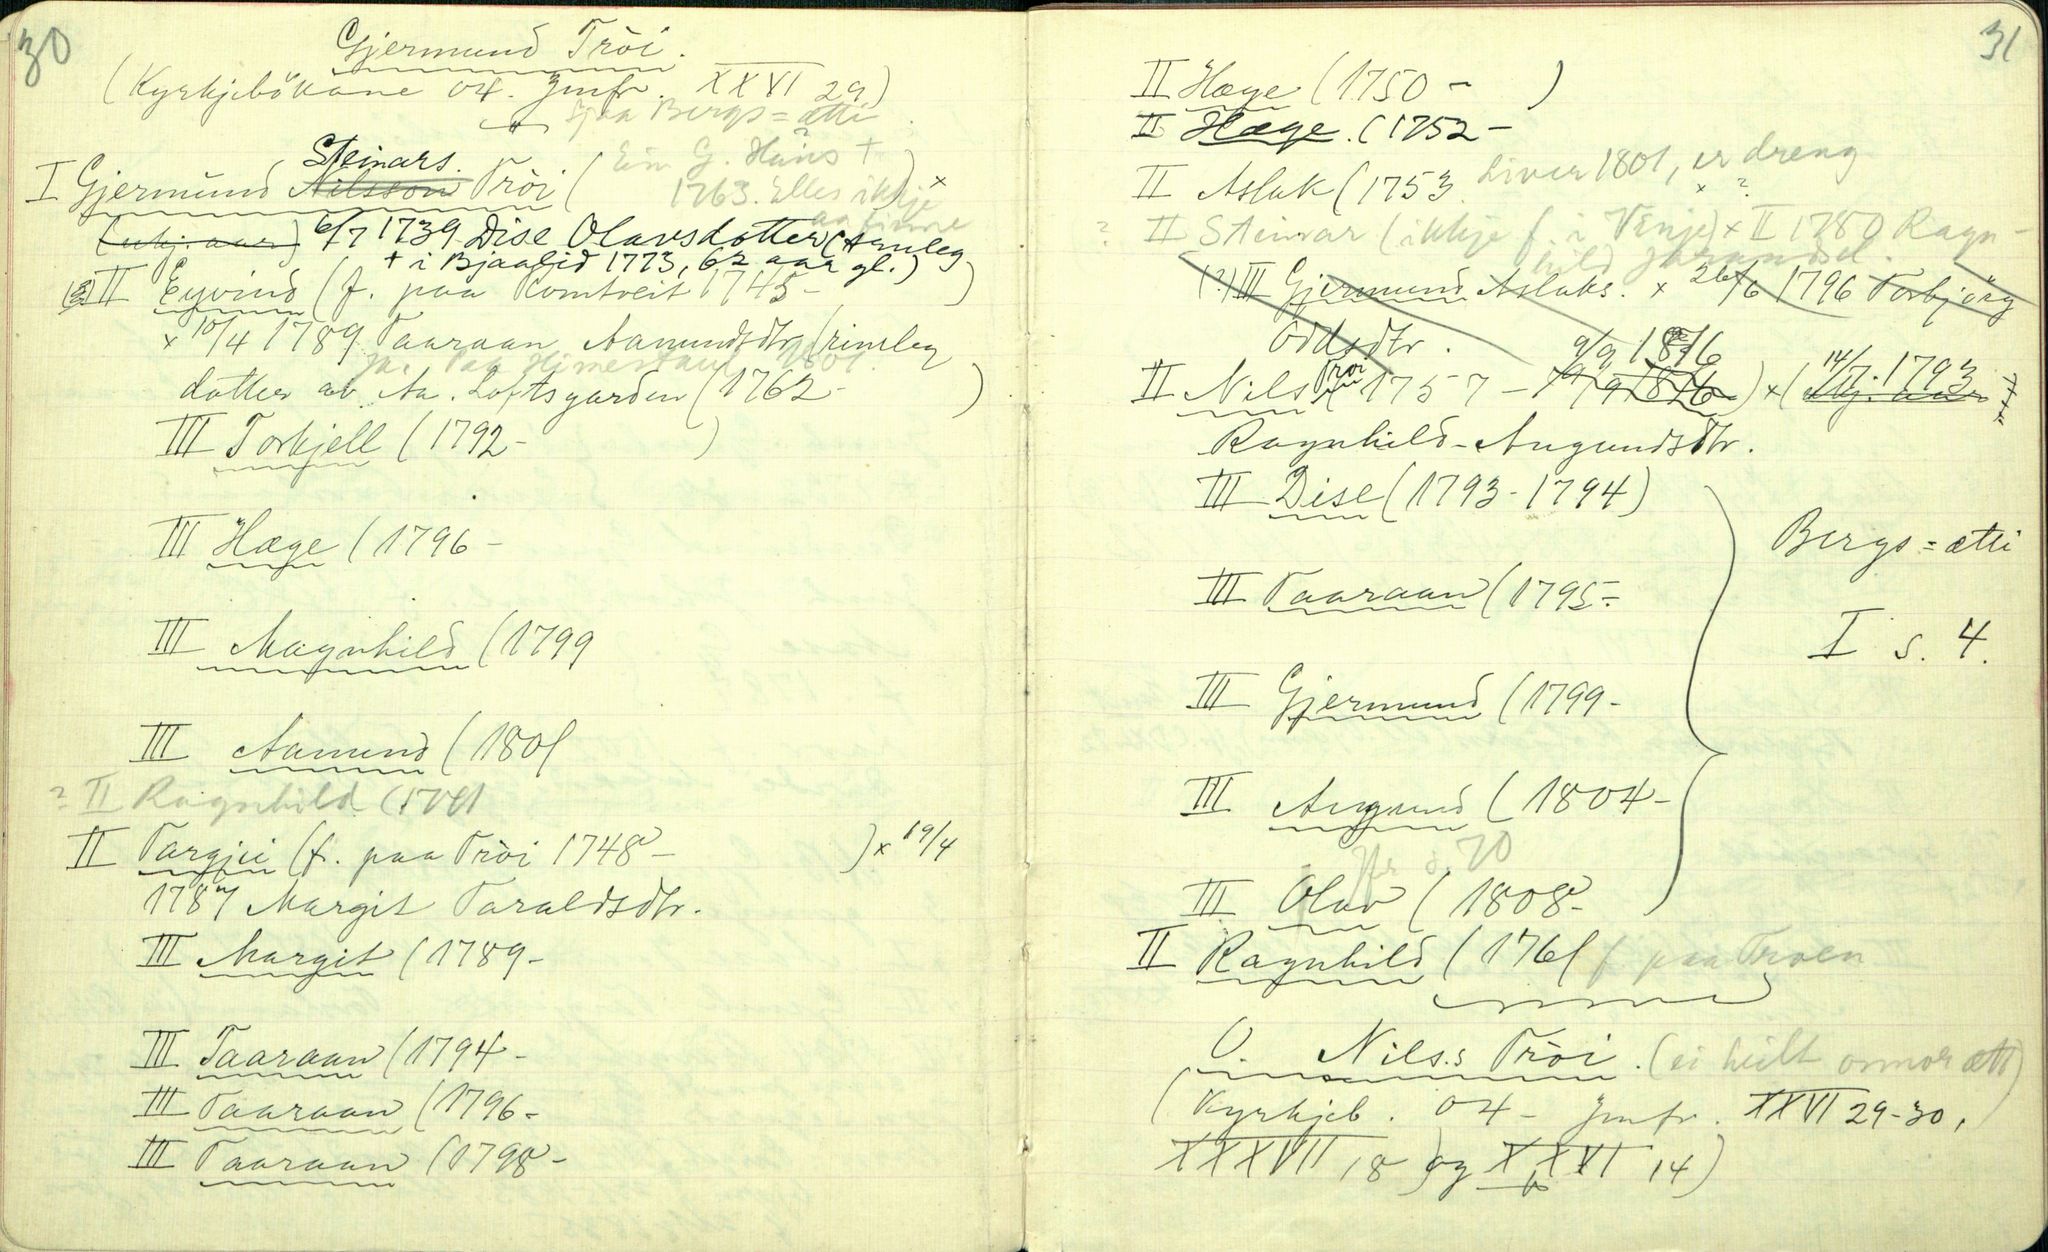 30
Gjermund Tröi.
(Kyrkjebökane 04. Jmfr. XXVI 29)
Bergs=ætti
Steinars.
I Gjermund Nilsson Tröi ( Ein G. Hans †
1763. Elles ikkje ) ×
aa finne
6/7 1739 Dise Olavsdotter (truleg
† i Bjaalid 1773, 62 aar gl.)
II Eyvind (f. paa Romtveit 1745- )
× 10/4 1789 Taaraan Aamundsdtr (rimeleg
Ja. Paa Himestaul 1801.
dotter av Aa. Loftsgarden (1762- )
III Torkjell (1792- )
III Hæge (1796-
III Magnhild (1799
III Aamund (1801
? II Ragnhild (1741
II Targjei (f. paa Tröi 1748- ) × 19/4
1787 Margit Taraldsdtr.
III Margit (1789-
III Taaraan (1794-
III Taaraan (1796-
III Taaraan (1798-
31
II Hæge (1750- )
II Hæge. (1752-
II Aslak (1753 Liver 1801, er dreng
× ?
? II Steinar (ikkje f. i Vinje) × II 1780 Ragn-
hild Jarandsd.
(?) III Gjermund Aslaks. × 26/6 1796 Torbjörg
Oddsdtr.
9/9 1816
II Nils Tröi (1757 - 19/9 1816) × ( 14/7 1793
Ragnhild Augundsdtr.
III Dise (1793-1794)
Bergs=ætti
III Taaraan (1795-
I s. 4.
III Gjermund (1799-
III Augund (1804-
Jfr s. 70
III Olav (1808-
II Ragnhild (1761 f. paa Troen
O. Nils.s Tröi. (ei heilt onnor ætt)
(Kyrkjeb. 04 - Jmfr. XXVI 29-30,
XXXVII 18 og XXVI 14)